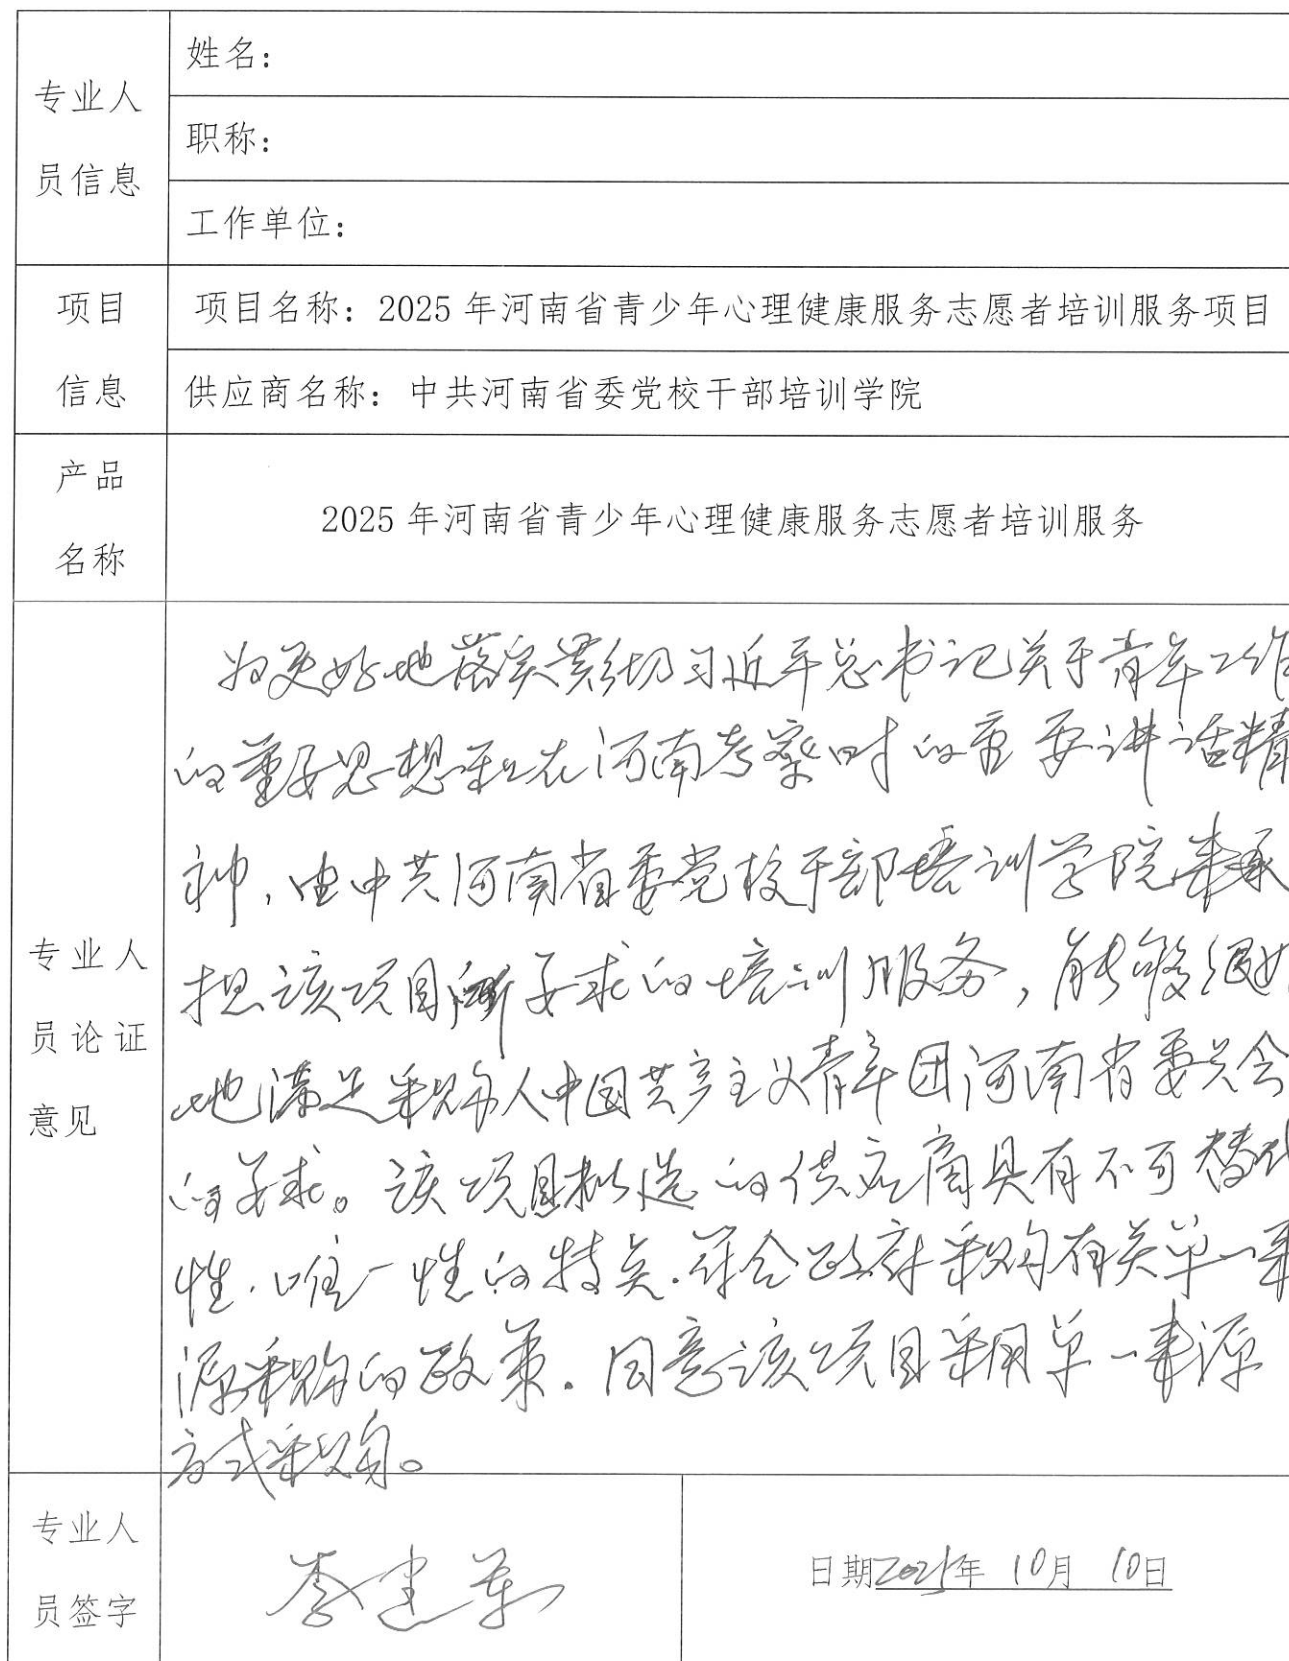 专业人
员信息
姓名：
职称：
工作单位：
项目
信息
项目名称：2025 年河南省青少年心理健康服务志愿者培训服务项目
供应商名称：中共河南省委党校干部培训学院
产品
名称
2025 年河南省青少年心理健康服务志愿者培训服务
专业人
员论证
意见
为更好地落实贯彻习近平总书记关于青年工作
的重要思想和在河南考察时的重要讲话精
神，由中共河南省委党校干部培训学院来承
担该项目所要求的培训服务，能够很好
地满足采购人中国共产主义青年团河南省委员会
的要求。该项目拟选的供应商具有不可替代
性、唯一性的特点．符合政府采购有关单一来
源采购的政策．同意该项目采用单一来源
方式采购。
专业人
员签字
李建军
日期2025年 10月 10日